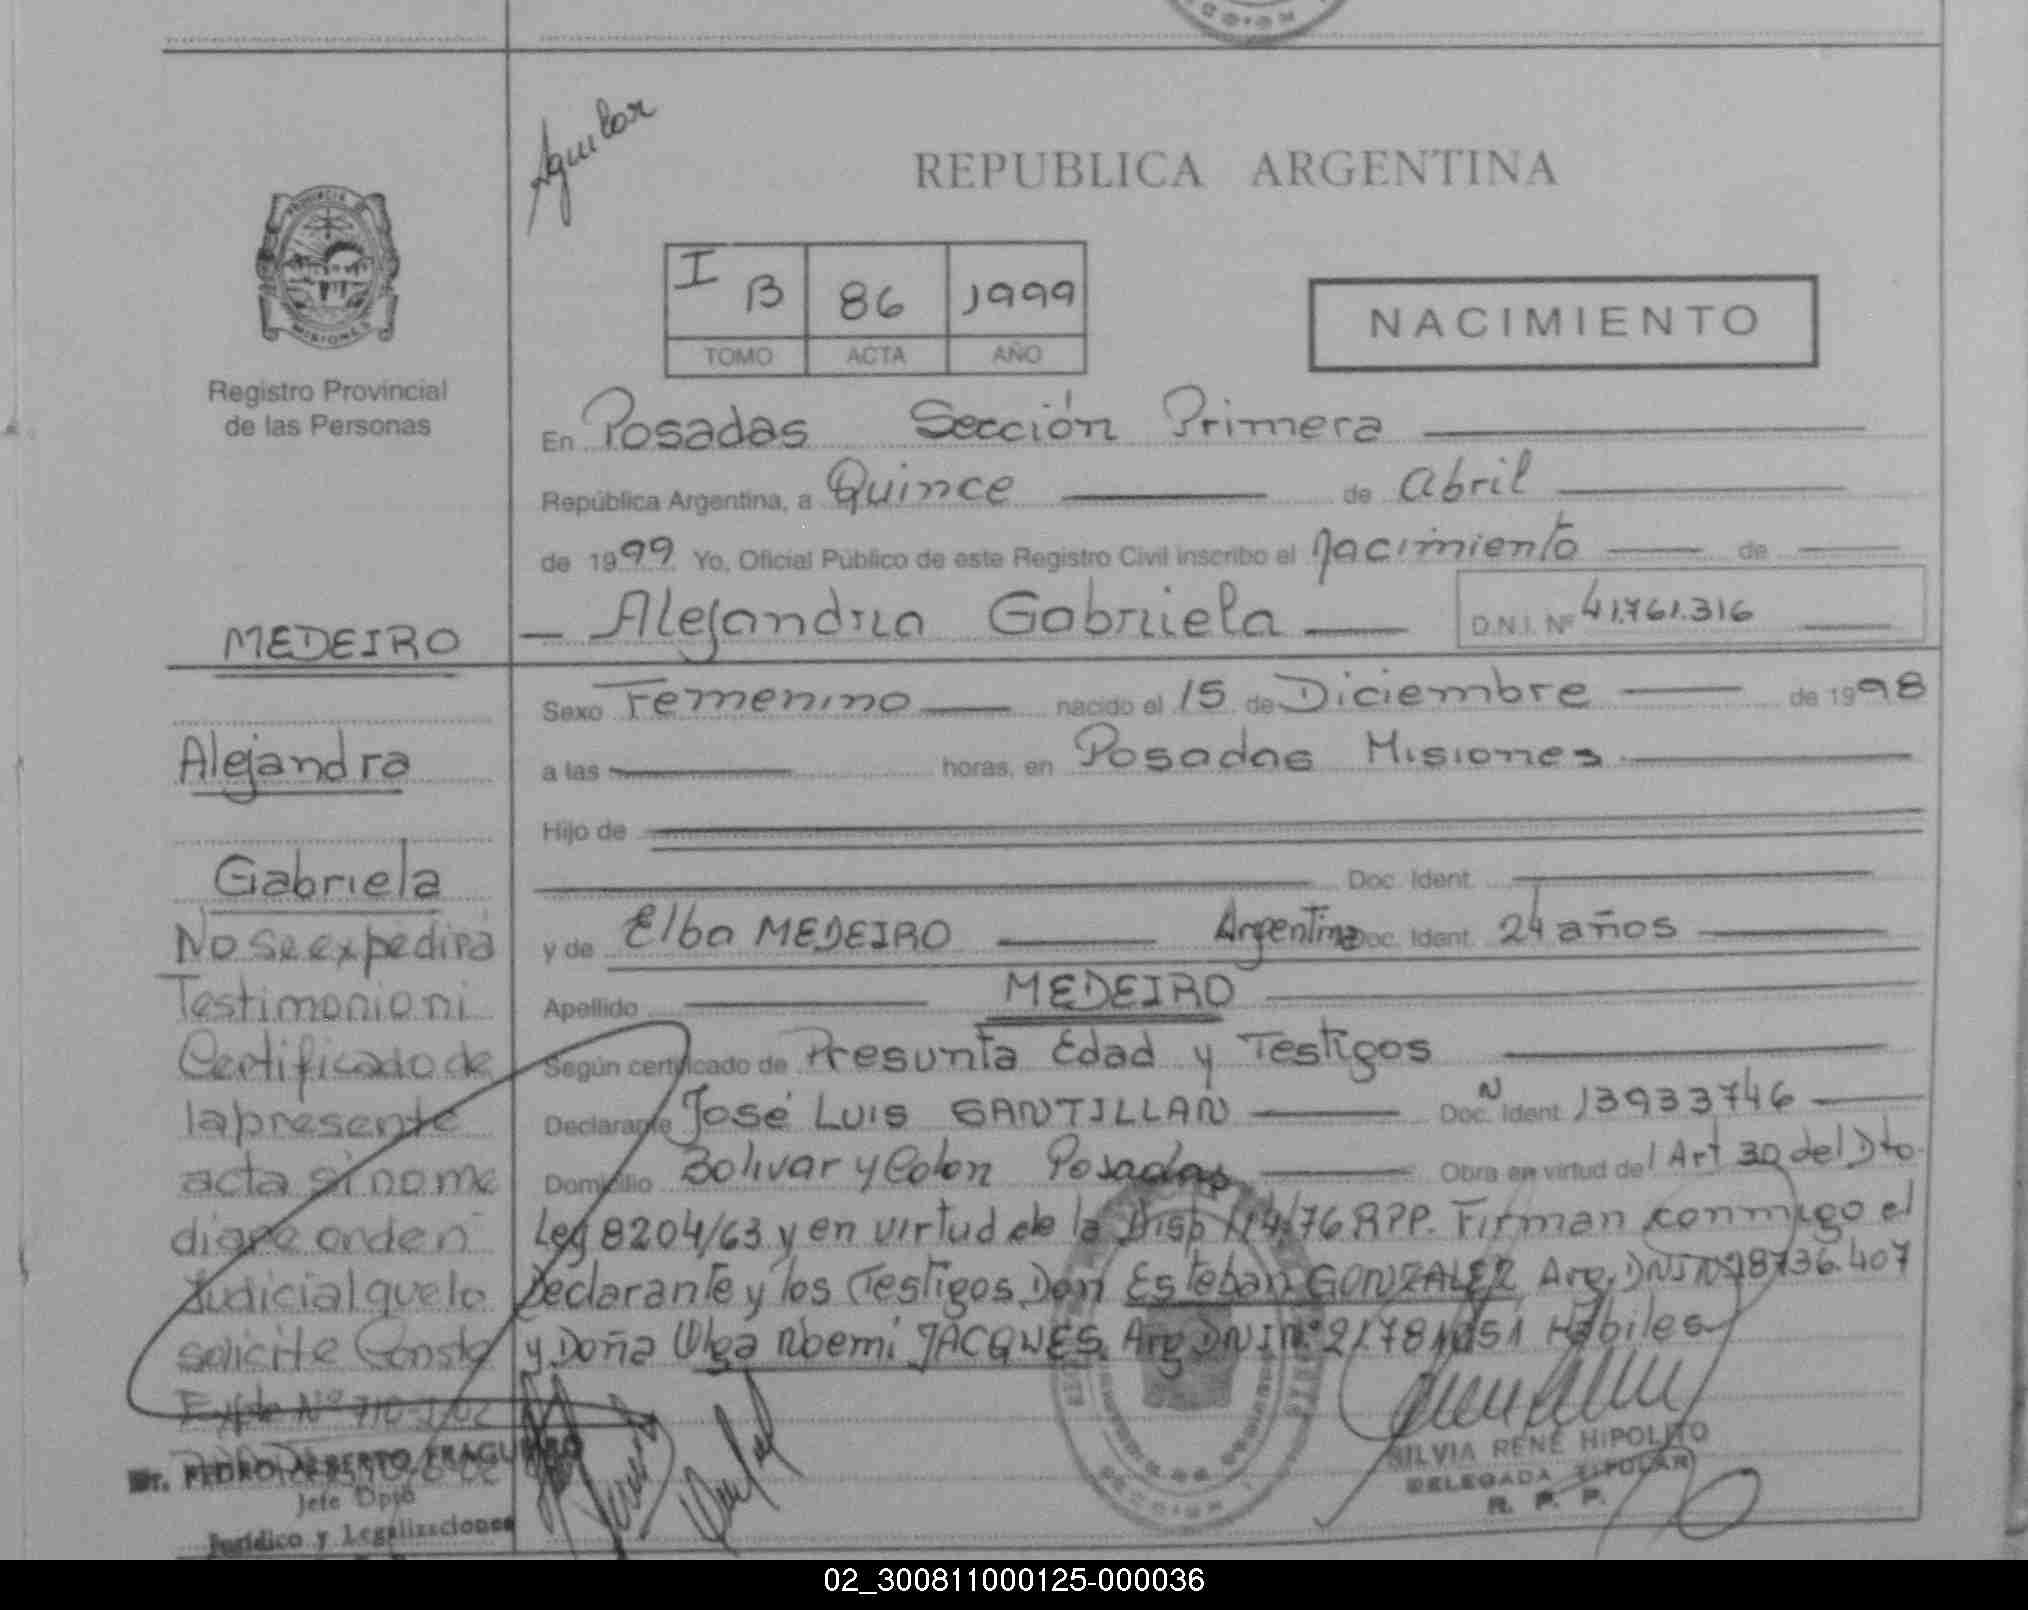 Aguilar
REPUBLICA ARGENTINA
PROVINCIA DE
MISIONES
I B 86 1999
TOMO ACTA AÑO
NACIMIENTO
Registro Provincial
de las Personas
En Posadas Sección Primera
República Argentina, a Quince de abril
de 1999 Yo, Oficial Público de este Registro Civil inscribo el Nacimiento de
Alejandra Gabriela D.N.I. Nº 41.761.316
MEDEIRO
Alejandra
Gabriela
No se expedirá
Testimonio ni
Certificado de
la presente
acta si no me
diare orden
Judicial que lo
solicite Consta
Expte Nº 710
Dr. PEDRO ALBERTO FRAGUEIRO
Jefe Dpto
Jurídico y Legalizaciones
Sexo Femenino nacido el 15 de Diciembre de 1998
a las horas, en Posadas Misiones
Hijo de
Doc. Ident.
y de Elba MEDEIRO Argentina Doc. Ident. 24 años
Apellido MEDEIRO
Según certificado de Presunta Edad y Testigos
Declarante José Luis SANTILLAN Doc. Ident. N 13933746
Domicilio Bolivar y Colon Posadas Obra en virtud del Art 30 del Dto.
Ley 8204/63 y en virtud de la Disp 114/76 RPP. Firman conmigo el
Declarante y los Testigos Don Esteban GONZALEZ Arg. DNI Nº 18736.407
y Doña Olga Noemi JACQUES Arg DNI Nº 21.781.051 Hábiles
SILVIA RENE HIPOLITO
DELEGADA TITULAR
R. P. P.
02_300811000125-000036